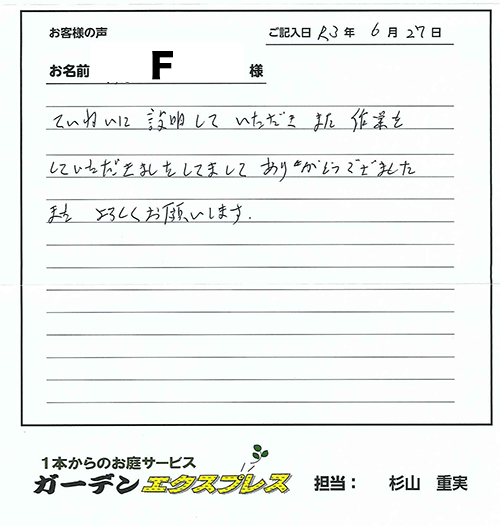 お客様の声
ご記入日 R3年 6月27日
お名前 F 様
ていねいに 説明して いただき また 作業を
していただきましをしてまして ありがとうでざました
また よろしくお願いします.
1本からのお庭サービス
ガーデンエクスプレス 担当: 杉山 重実